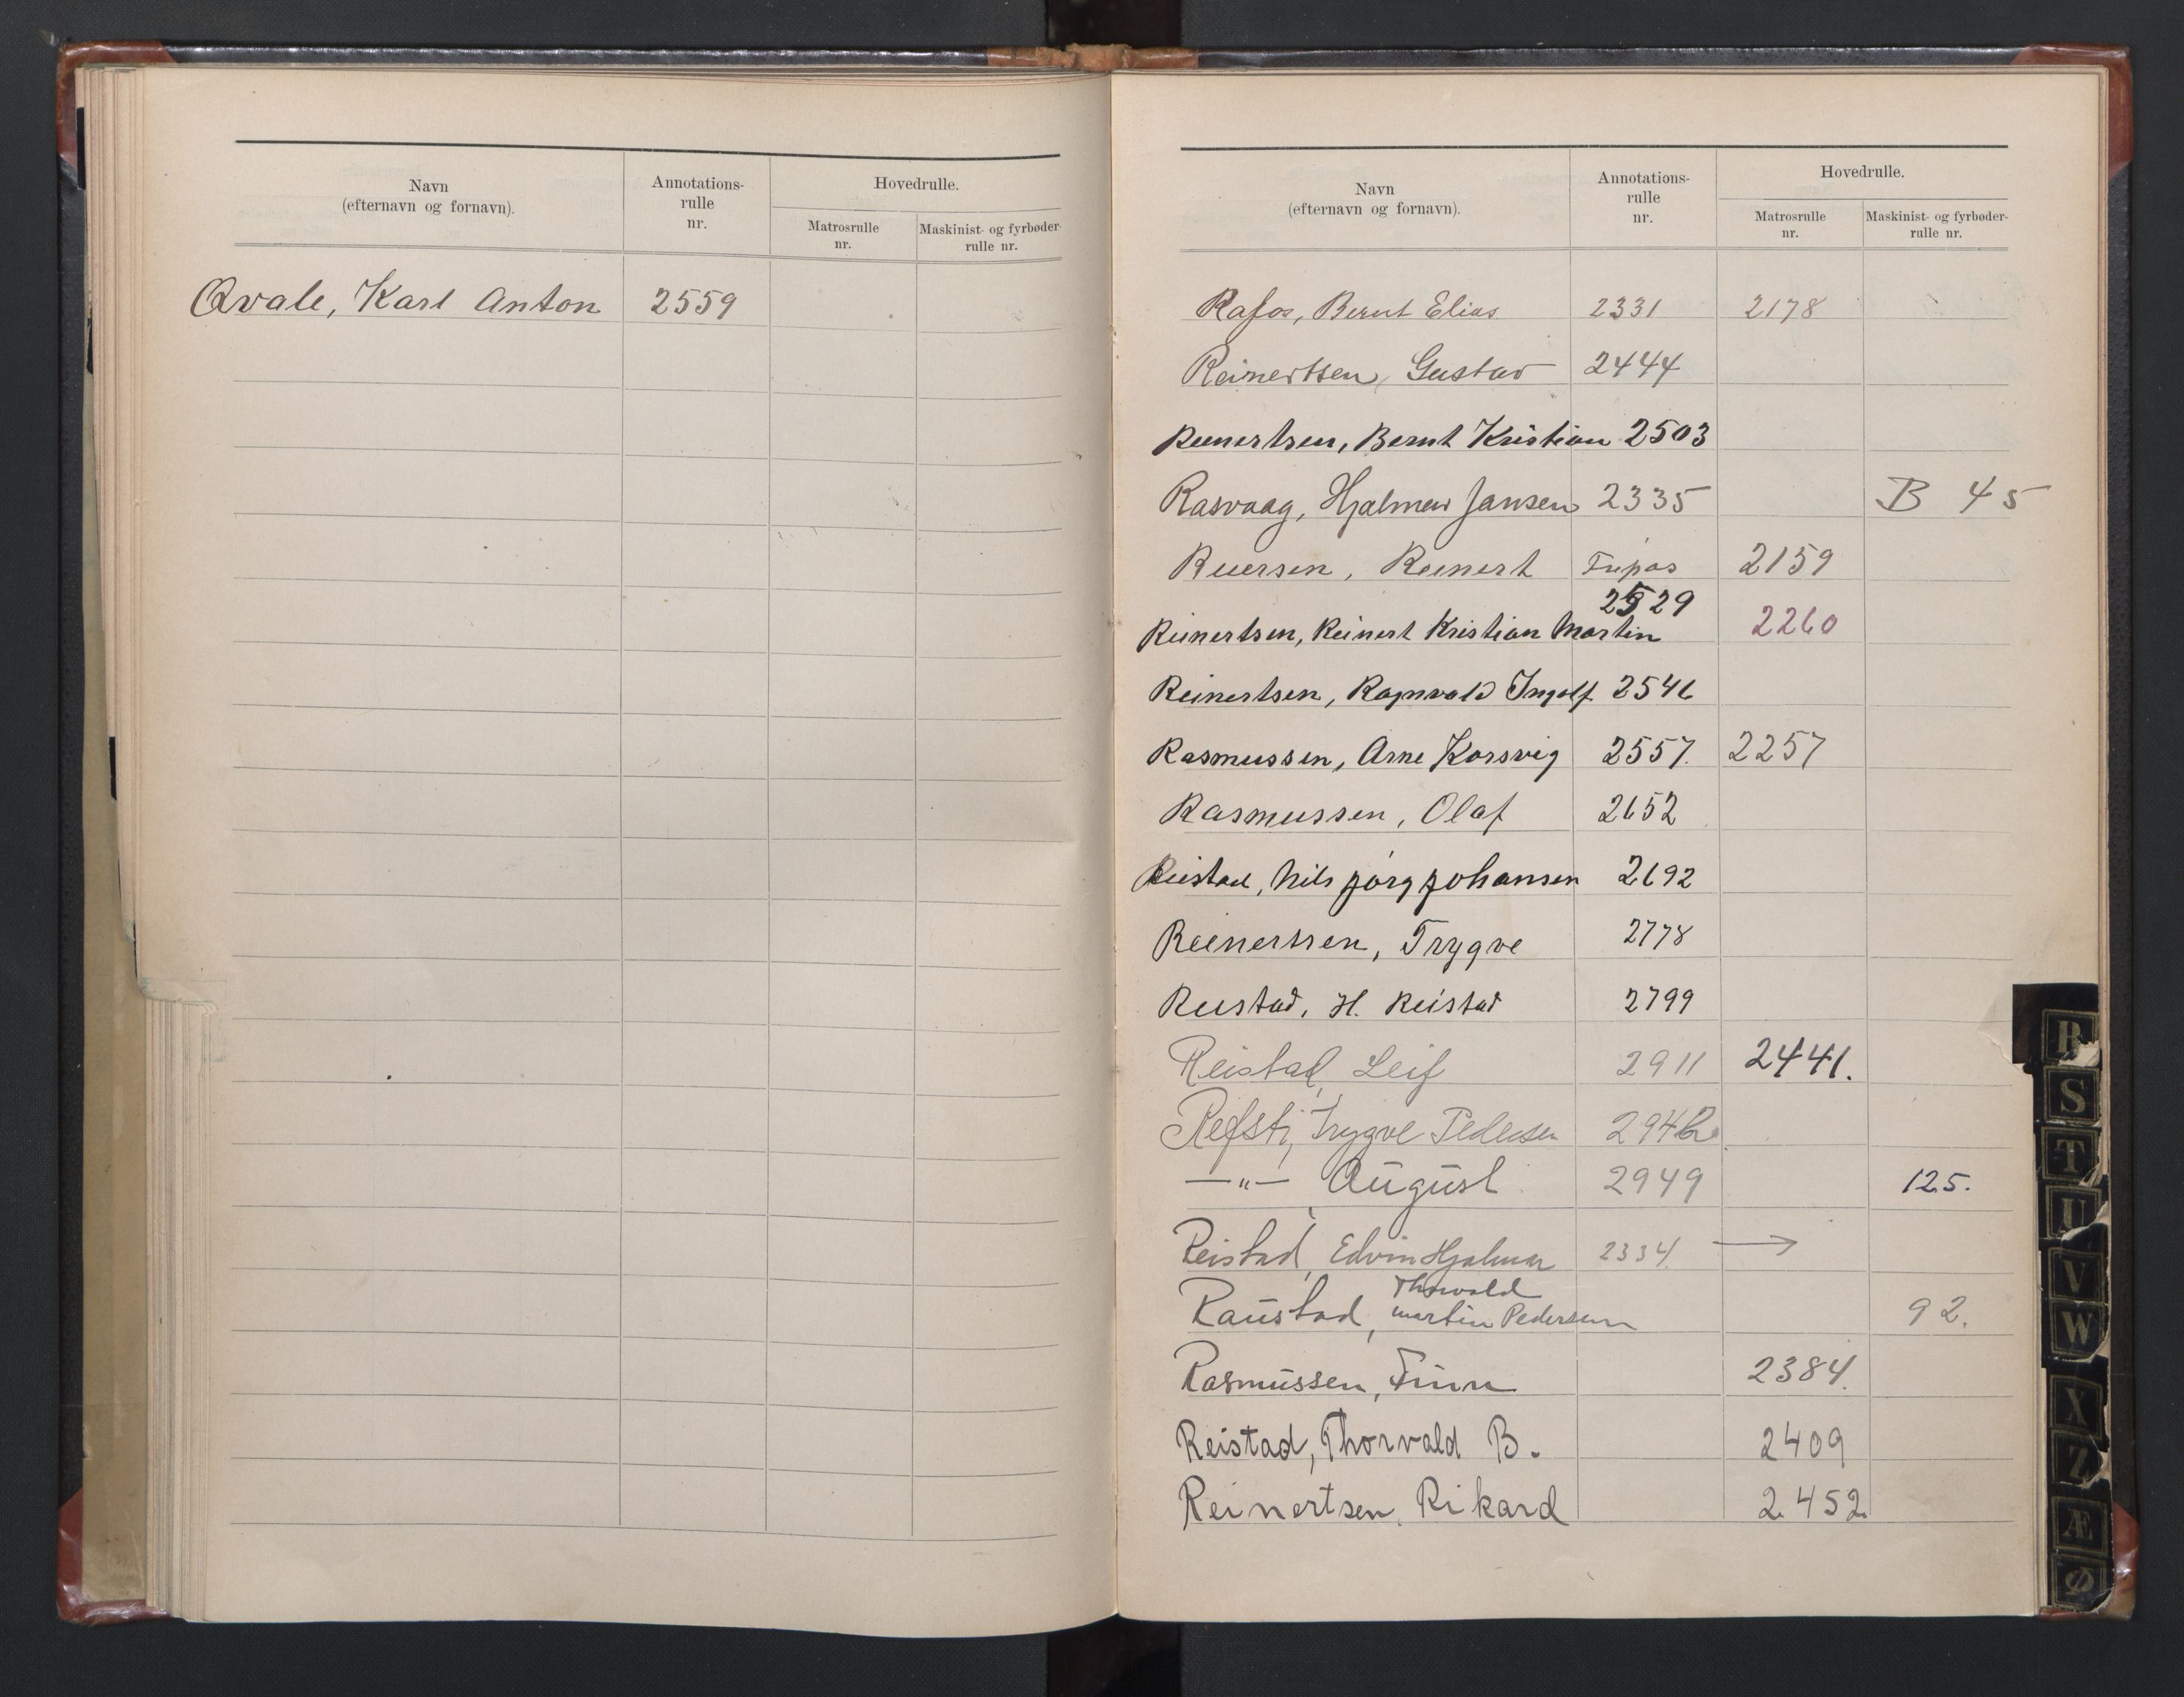 Navn
(efternavn og fornavn).
Annotations-
rulle
nr.
Hovedrulle.
Matrosrulle
nr.
Maskinist- og fyrbøder-
rulle nr.
Qvale, Karl Anton 2559
Navn
(efternavn og fornavn).
Annotations-
rulle
nr.
Hovedrulle.
Matrosrulle
nr.
Maskinist- og fyrbøder-
rulle nr.
Rafos, Bernt Elias 2331 2178
Reinertsen, Gustav 2444
Reinertsen, Bernt Kristian 2503
Rasvaag, Hjalmar Jansen 2335 B 45
Reiersen, Reinert Fripas 2159
2529
Reinertsen, Reinert Kristian Martin 2260
Reinertsen, Ragnvald Ingolf 2546
Rasmussen, Arne Korsvig 2557. 2257
Rasmussen, Olaf 2652
Reistad, Nils Jørg Johansen 2692
Reinertsen, Trygve 2778
Reistad, H. Reistad 2799
Reistad, Leif 2911 2441.
Refsti, Trygve Pedersen
—"— August 2949 125.
Reistad, Edvin Hjalmar 2334. →
Thorvald
Raustad, Martin Pedersen 92.
Rasmussen, Finn 2384.
Reistad, Thorvald B. 2409
Reinertsen, Rikard 2452
R
S
T
U
V
W
X
Z
Æ
Ø